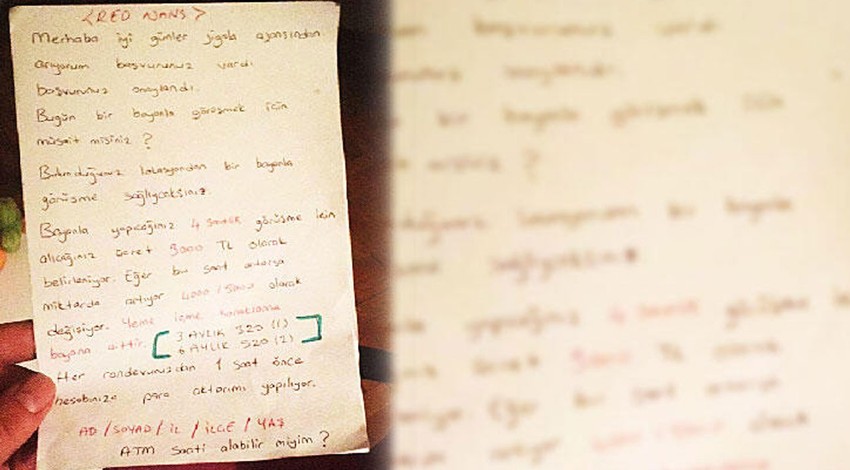 <RED AJANS>
Merhaba iyi günler jigolo ajansından
arıyorum başvurunuz vardı
başvurunuz onaylandı.
Bugün bir bayanla görüşmek için
müsait misiniz ?
Bulunduğunuz lokasyondan bir bayanla
görüşme sağlıycaksınız.
Bayanla yapıcağınız 4 saatlik görüşme için
alıcağınız ücret 3000 TL olarak
belirleniyor. Eğer bu saat artarsa
miktarda artıyor 4000 / 5000 olarak
değişiyor. Yeme içme konaklama
bayana aittir.
3 AYLIK 329 (1)
6 AYLIK 520 (2)
Her randevunuzdan 1 saat önce
hesabınıza para aktarımı yapılıyor.
AD / SOYAD / İL / İLÇE / YAŞ
ATM saati alabilir miyim ?